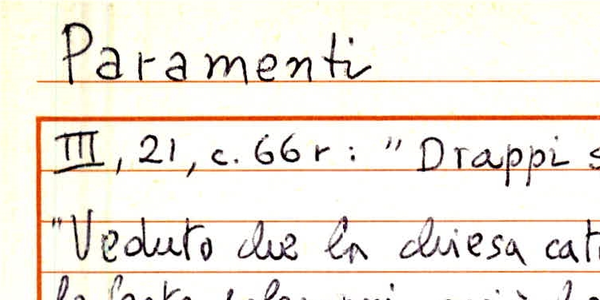 Paramenti
III, 21, c. 66 r : " Drappi s
"Veduto che la chiesa cat
le feste